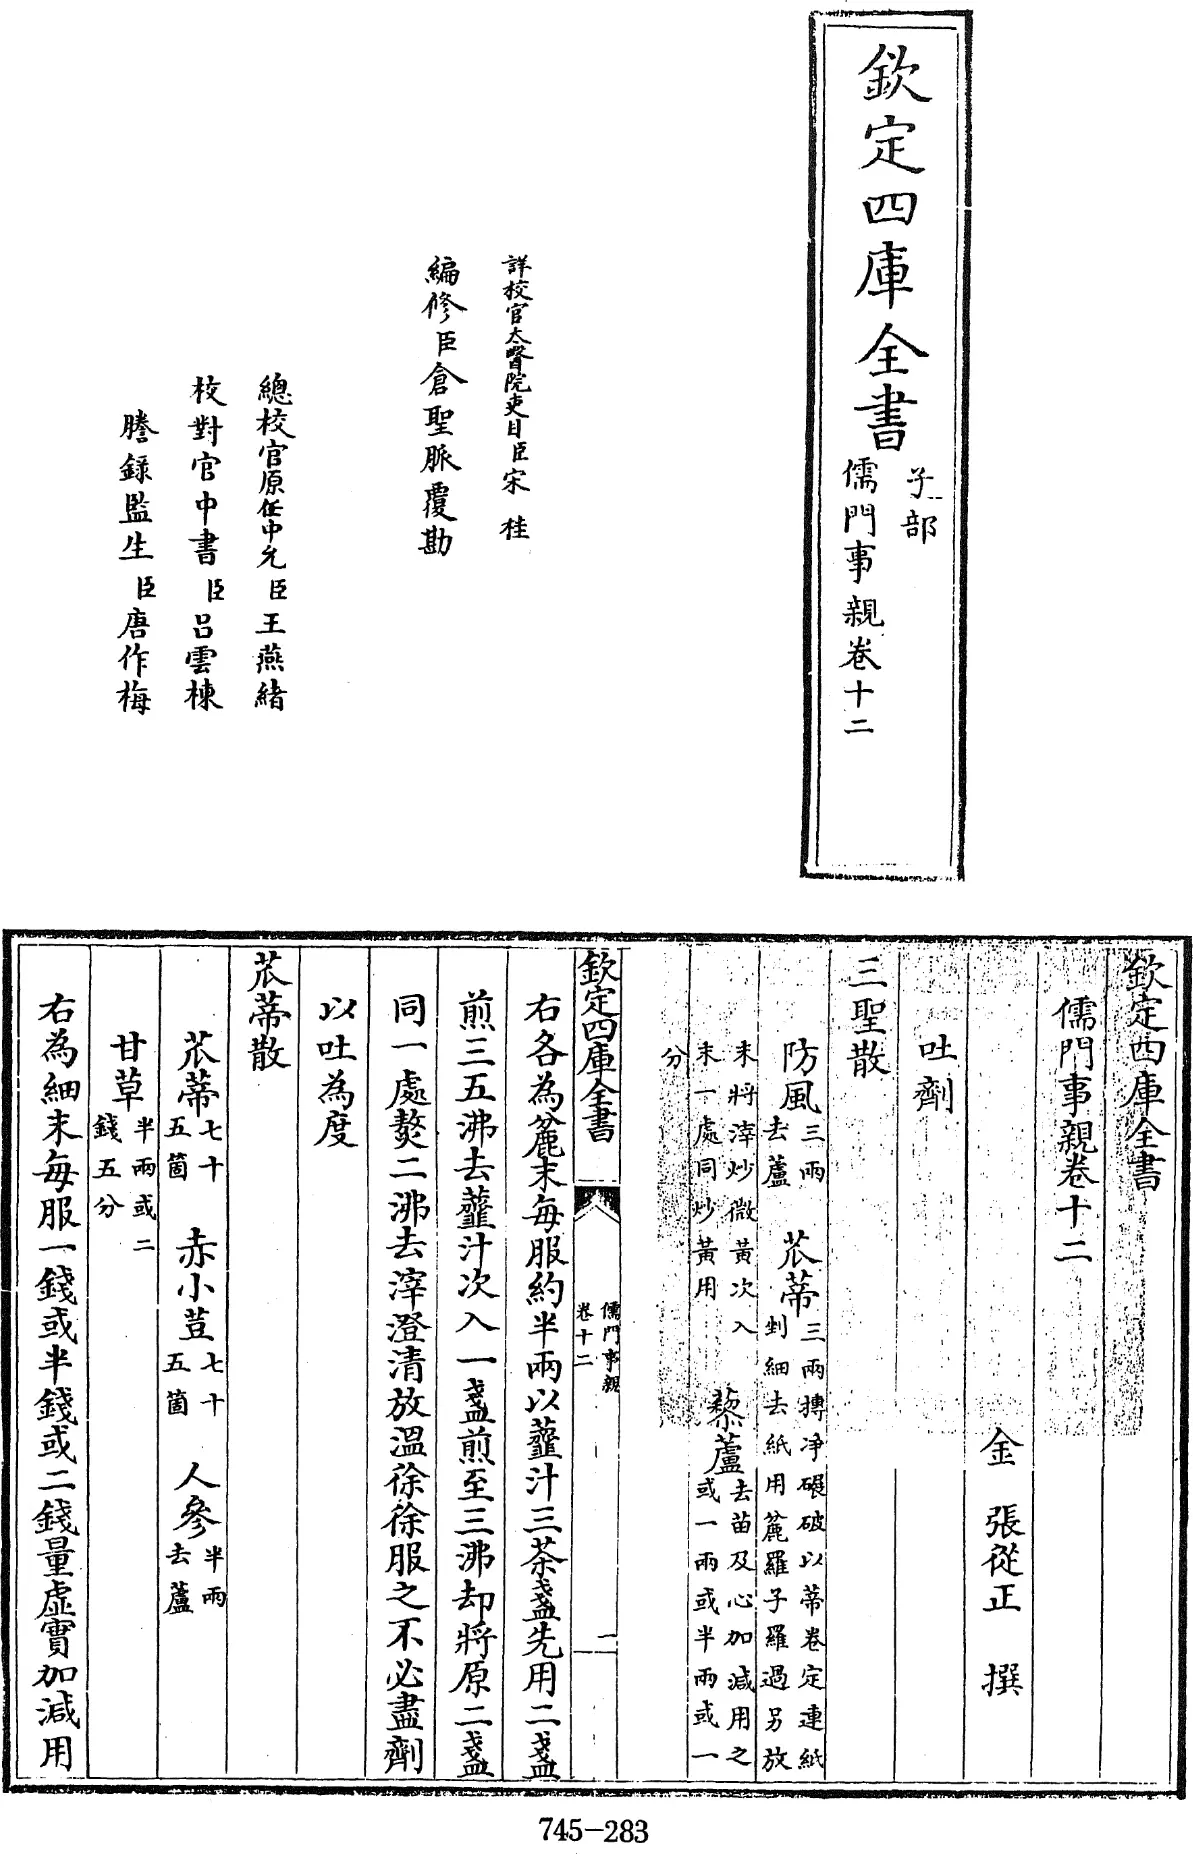 欽定四庫全書
子部
儒門事親卷十二
詳校官太醫院吏目臣宋桂
編修臣倉聖脈覆勘
總校官原任中允臣王燕緒
校對官中書臣呂雲棟
謄錄監生臣唐作梅
欽定四庫全書
儒門事親卷十二
金 張從正 撰
吐劑
三聖散
防風三兩去蘆 苽蔕三兩摶凈碾破以蔕卷定連紙剉細去紙用麄羅子羅過另放
末將滓炒微黃次入末一處同炒黃用 藜蘆去苗及心加減用之或一兩或半兩或一
分
右各為麄末每服約半兩以虀汁三茶盞先用二盞
煎三五沸去虀汁次入一盞煎至三沸却將原二盞
同一處熬二沸去滓澄清放溫徐徐服之不必盡劑
以吐為度
苽蔕散
苽蔕七十五箇 赤小荳七十五箇 人參半兩去蘆
甘草半兩或二錢五分
右為細末每服一錢或半錢或二錢量虛實加減用
欽定四庫全書
儒門事親
卷十二
一
745-283